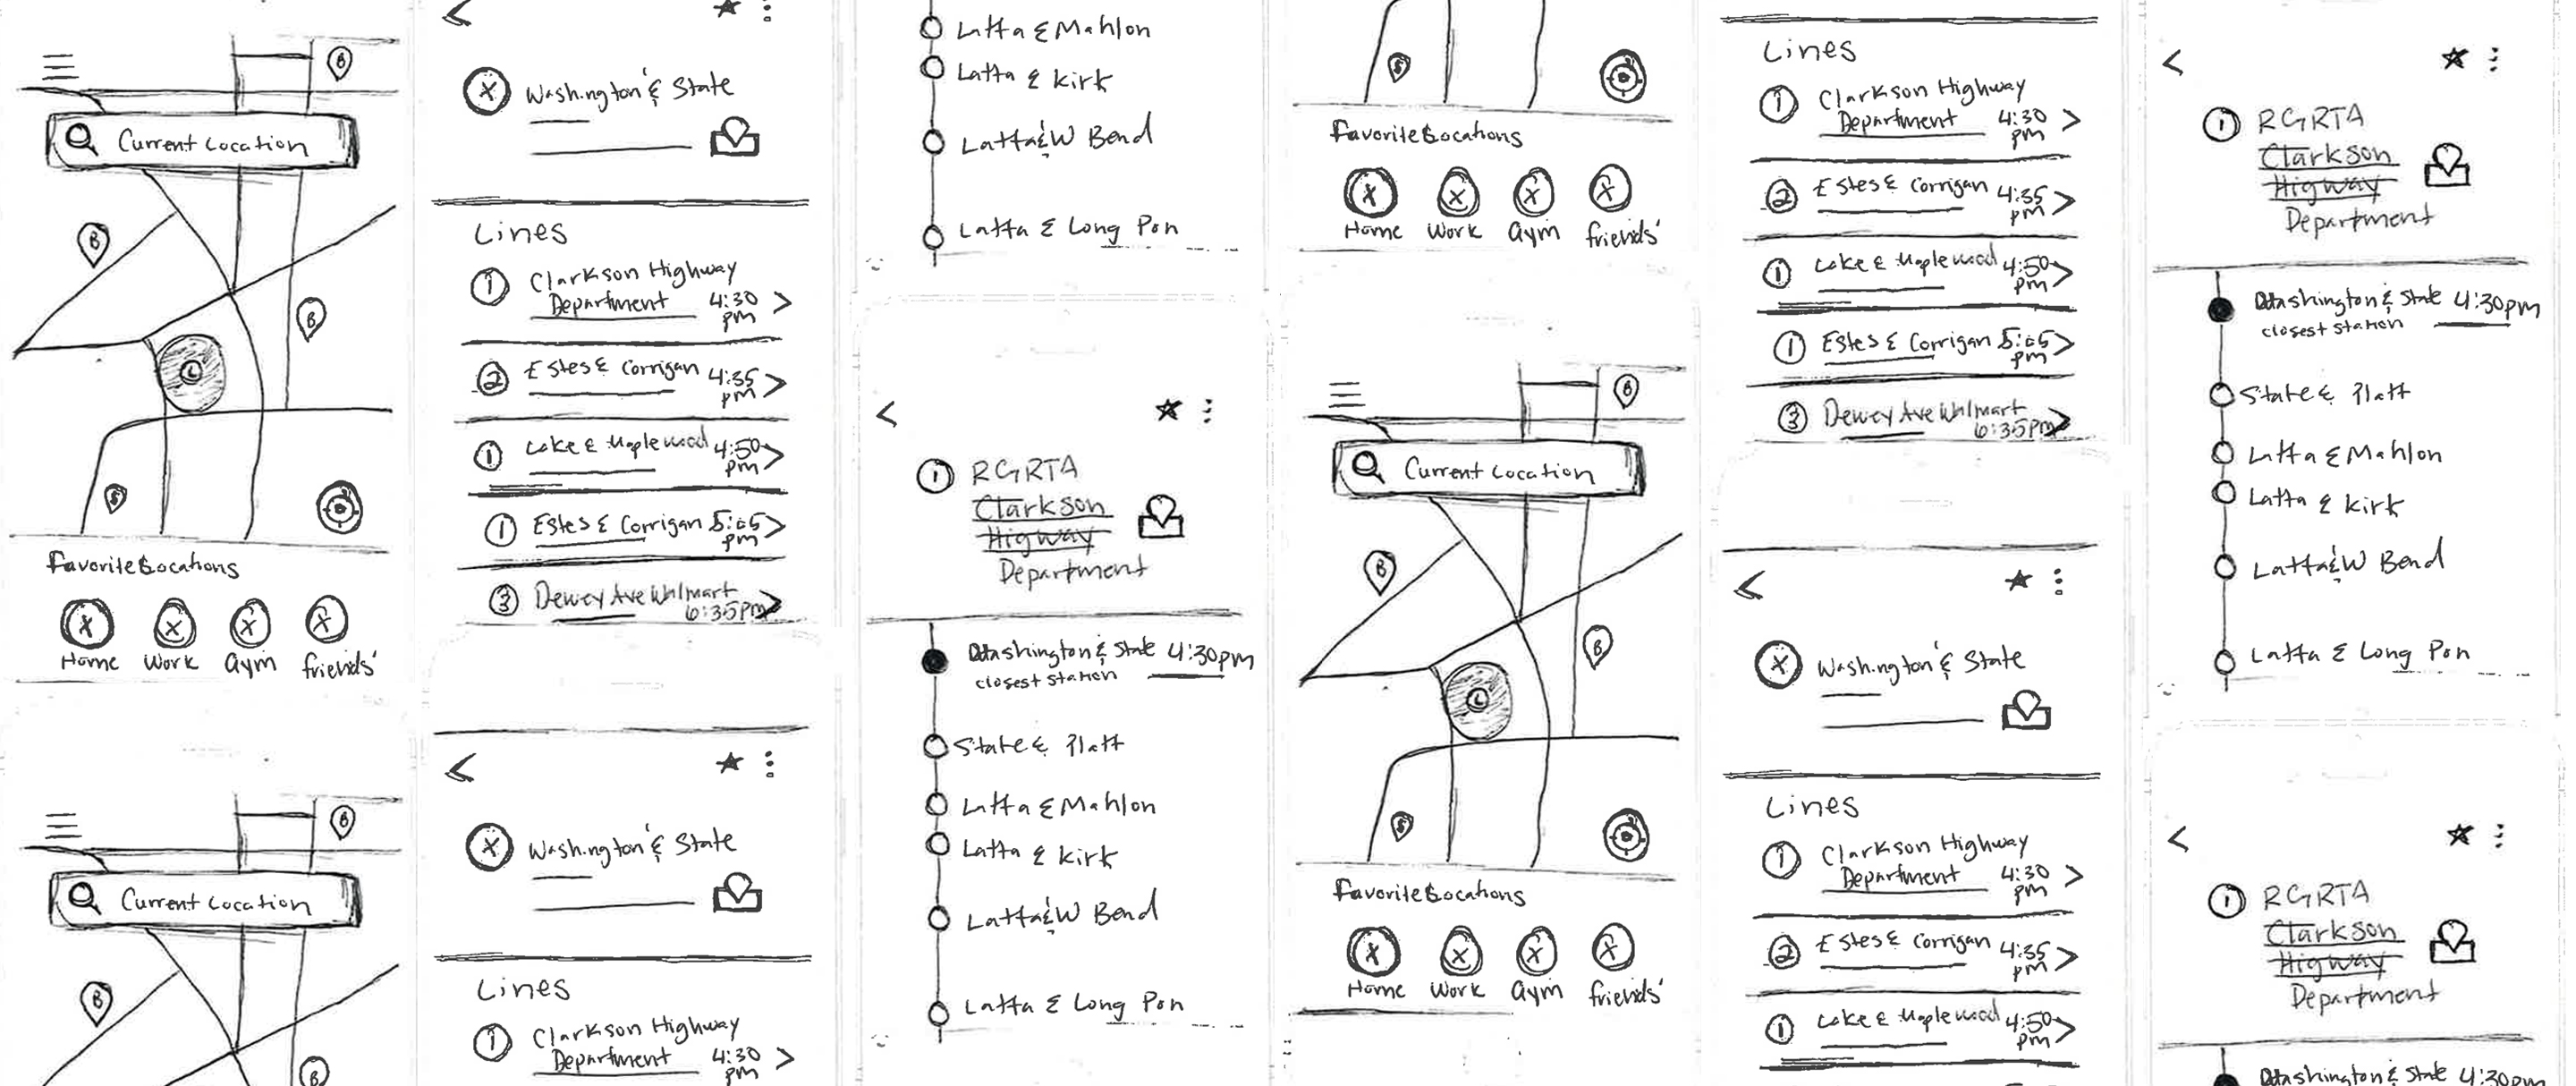 B
Current Location
B
B
L
S
Favorite Locations
X X X X
Home Work Gym friends'
B
Current Location
B
B
X Washington & State
Lines
1 Clarkson Highway
Department 4:30
pm
2 Estes & Corrigan 4:35
pm
1 Lake & Maplewood 4:50
pm
1 Estes & Corrigan 5:05
pm
3 Dewey Ave Walmart
6:35pm
X Washington & State
Lines
1 Clarkson Highway
Department 4:30
pm
Latta & Mahlon
Latta & Kirk
Latta & W Bend
Latta & Long Pon
1 RGRTA
Clarkson
Higway
Department
Washington & State 4:30pm
closest station
State & Platt
Latta & Mahlon
Latta & Kirk
Latta & W Bend
Latta & Long Pon
S
Favorite Locations
X X X X
Home Work Gym friends'
B
Current Location
B
B
L
S
Favorite Locations
X X X X
Home Work Gym friends'
Lines
1 Clarkson Highway
Department 4:30
pm
2 Estes & Corrigan 4:35
pm
1 Lake & Maplewood 4:50
pm
1 Estes & Corrigan 5:05
pm
3 Dewey Ave Walmart
6:35pm
X Washington & State
Lines
1 Clarkson Highway
Department 4:30
pm
2 Estes & Corrigan 4:35
pm
1 Lake & Maplewood 4:50
pm
1 RGRTA
Clarkson
Higway
Department
Washington & State 4:30pm
closest station
State & Platt
Latta & Mahlon
Latta & Kirk
Latta & W Bend
Latta & Long Pon
1 RGRTA
Clarkson
Higway
Department
Washington & State 4:30pm